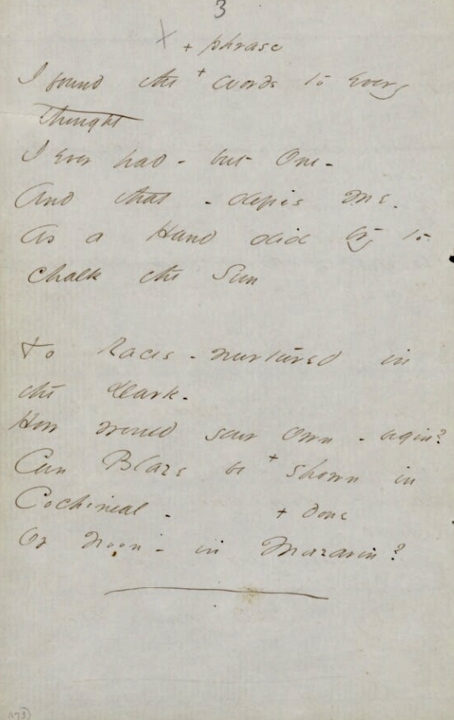 3
+ phrase
I found the + words to Every
thought
I Ever had - but One -
And that - defies Me -
As a Hand did try to
Chalk the Sun
To Races - nurtured in
the Dark -
How would your Own - begin?
Can Blaze be + shown in
Cochineal -
+ done
Or Noon - in Mazarin?